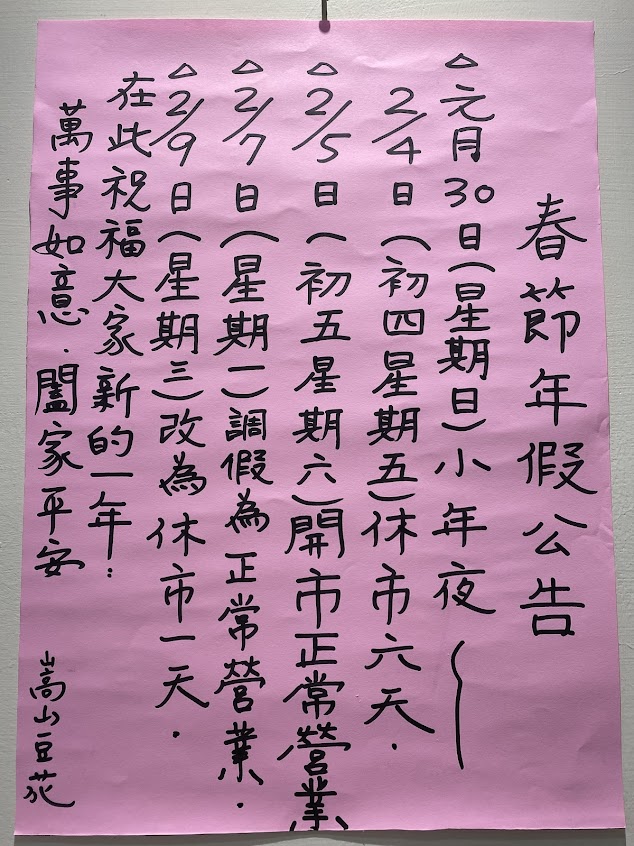 春節年假公告
△元月30日(星期日)小年夜~
2/4日(初四星期五)休市六天.
△2/5日(初五星期六)開市正常營業
△2/7日(星期一)調假為正常營業.
△2/9日(星期三)改為休市一天.
在此祝福大家新的一年:
萬事如意.闔家平安
嵩山豆花